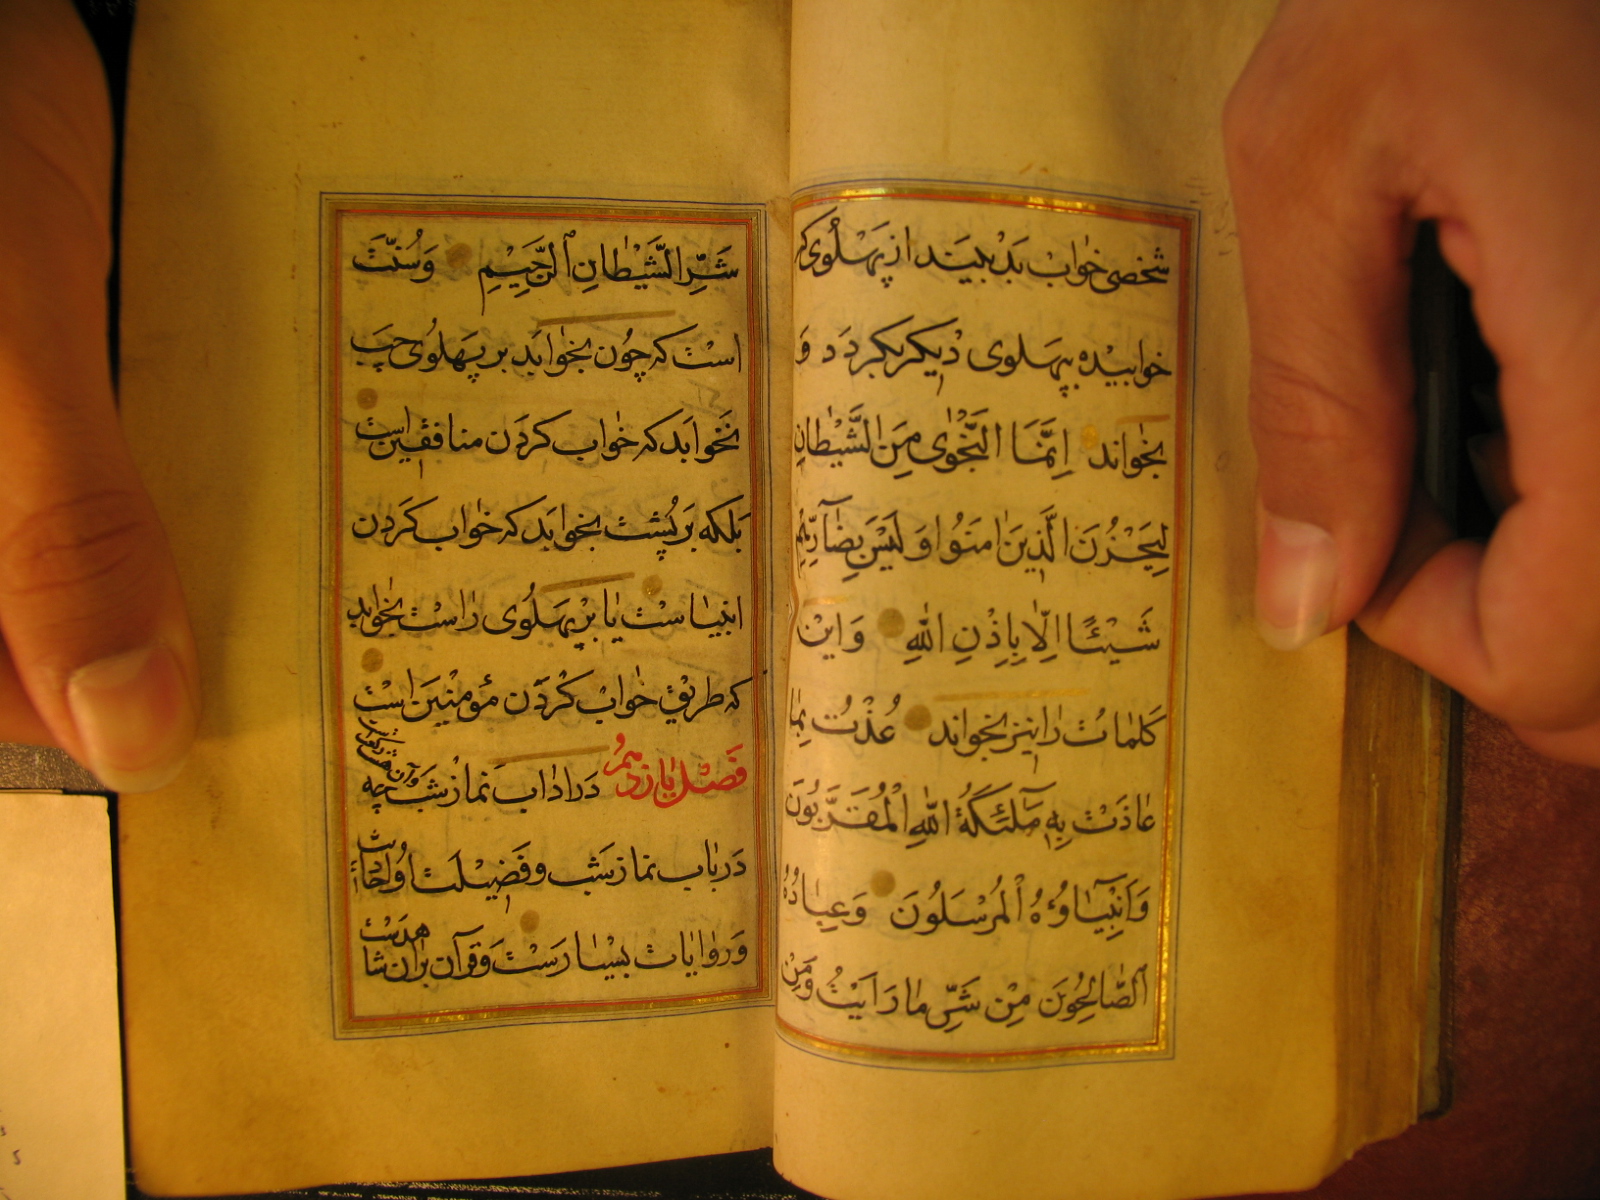 شخصی خواب بد ببیند از پهلوی که
خوابیده بپهلوی دیکر بکردد و
بخواند اِنَّمَا النَّجْوٰی مِنَ الشَّیْطانِ
لِیَحْزُنَ الَّذینَ اٰمَنُوا وَ لَیْسَ بِضٰآرِّهِمْ
شَیْئًا اِلّا بِاِذْنِ اللهِ وَ این
کلمات را نیز بخواند عُذْتُ بِما
عٰاذَتْ بِهِ مَلٰئِکَةُ اللهِ الْمُقَرَّبُونَ
وَ اَنْبِیٰآؤُهُ الْمُرْسَلُونَ وَ عِبادُهُ
الصّٰالِحُونَ مِنْ شَرِّ ما رَاَیْتُ وَ مِنْ
شَرِّ الشَّیْطانِ الرَّجِیْمِ وَ سُنّت
است که چون بخوابد بر پهلوی چپ
نخوابد که خواب کردن منافقین است
بلکه بر پشت بخوابد که خواب کردن
انبیا ست یا بر پهلوی راست بخوابد
که طریق خواب کردن مؤمنین است
فصل یازدهم در اداب نماز شب چه
در باب نماز شب و فضیلت او احادیث
و روایات بسیارست و قرآن بران شاهدست